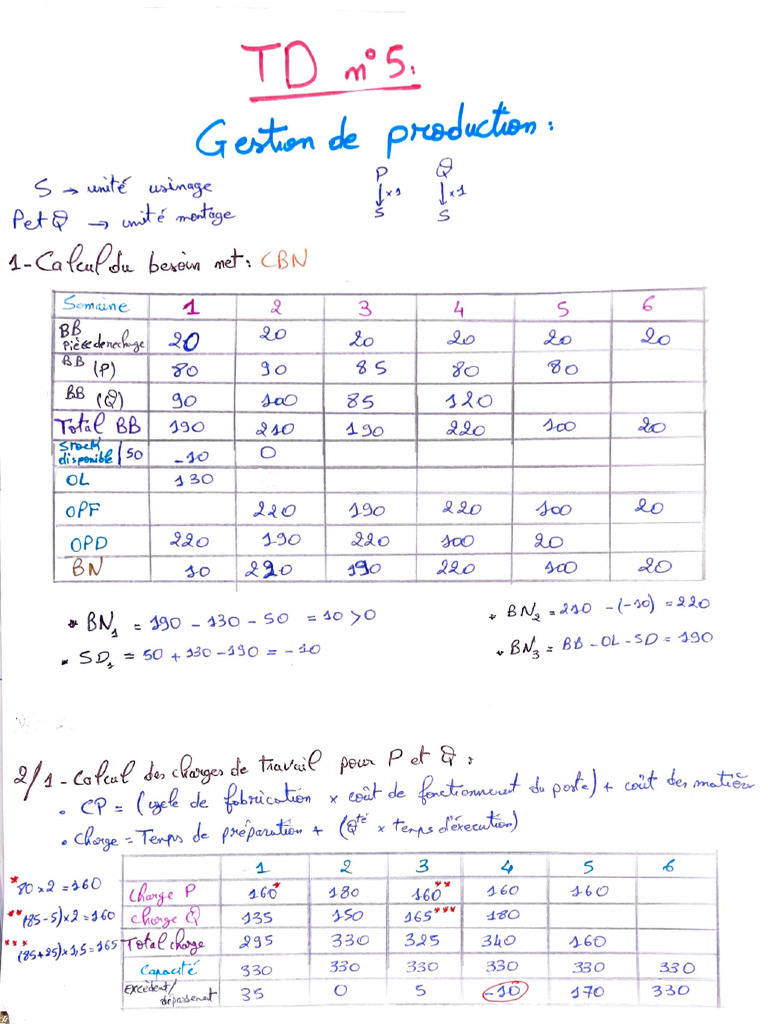 TD n°5:
Gestion de production:
S → unité usinage
P et Q → unité montage
P Q
↓×1 ↓×1
S S
1-Calcul du besoin net: CBN
Semaine 1 2 3 4 5 6
BB pièce de rechange 20 20 20 20 20 20
BB (P) 80 90 85 80 80
BB (Q) 90 100 85 120
Total BB 190 210 190 220 100 20
Stock disponible / 50 -10 0
OL 130
OPF 220 190 220 100 20
OPD 220 190 220 100 20
BN 10 220 190 220 100 20
* BN₁ = 190 - 130 - 50 = 10 > 0
* SD₁ = 50 + 130 - 190 = -10
* BN₂ = 210 - (-10) = 220
* BN₃ = BB - OL - SD = 190
2/1-Calcul des charges de travail pour P et Q:
• CP = (cycle de fabrication × coût de fonctionnement du poste) + coût des matière
• Charge = Temps de préparation + (Qté × temps d'éxecution)
1 2 3 4 5 6
Charge P 160* 180 160** 160 160
Charge Q 135 150 165*** 180
Total charge 295 330 325 340 160
Capacité 330 330 330 330 330 330
Excédent/dépassement 35 0 5 -10 170 330
* 80 × 2 = 160
** (85-5) × 2 = 160
*** (85+25) × 1,5 = 165